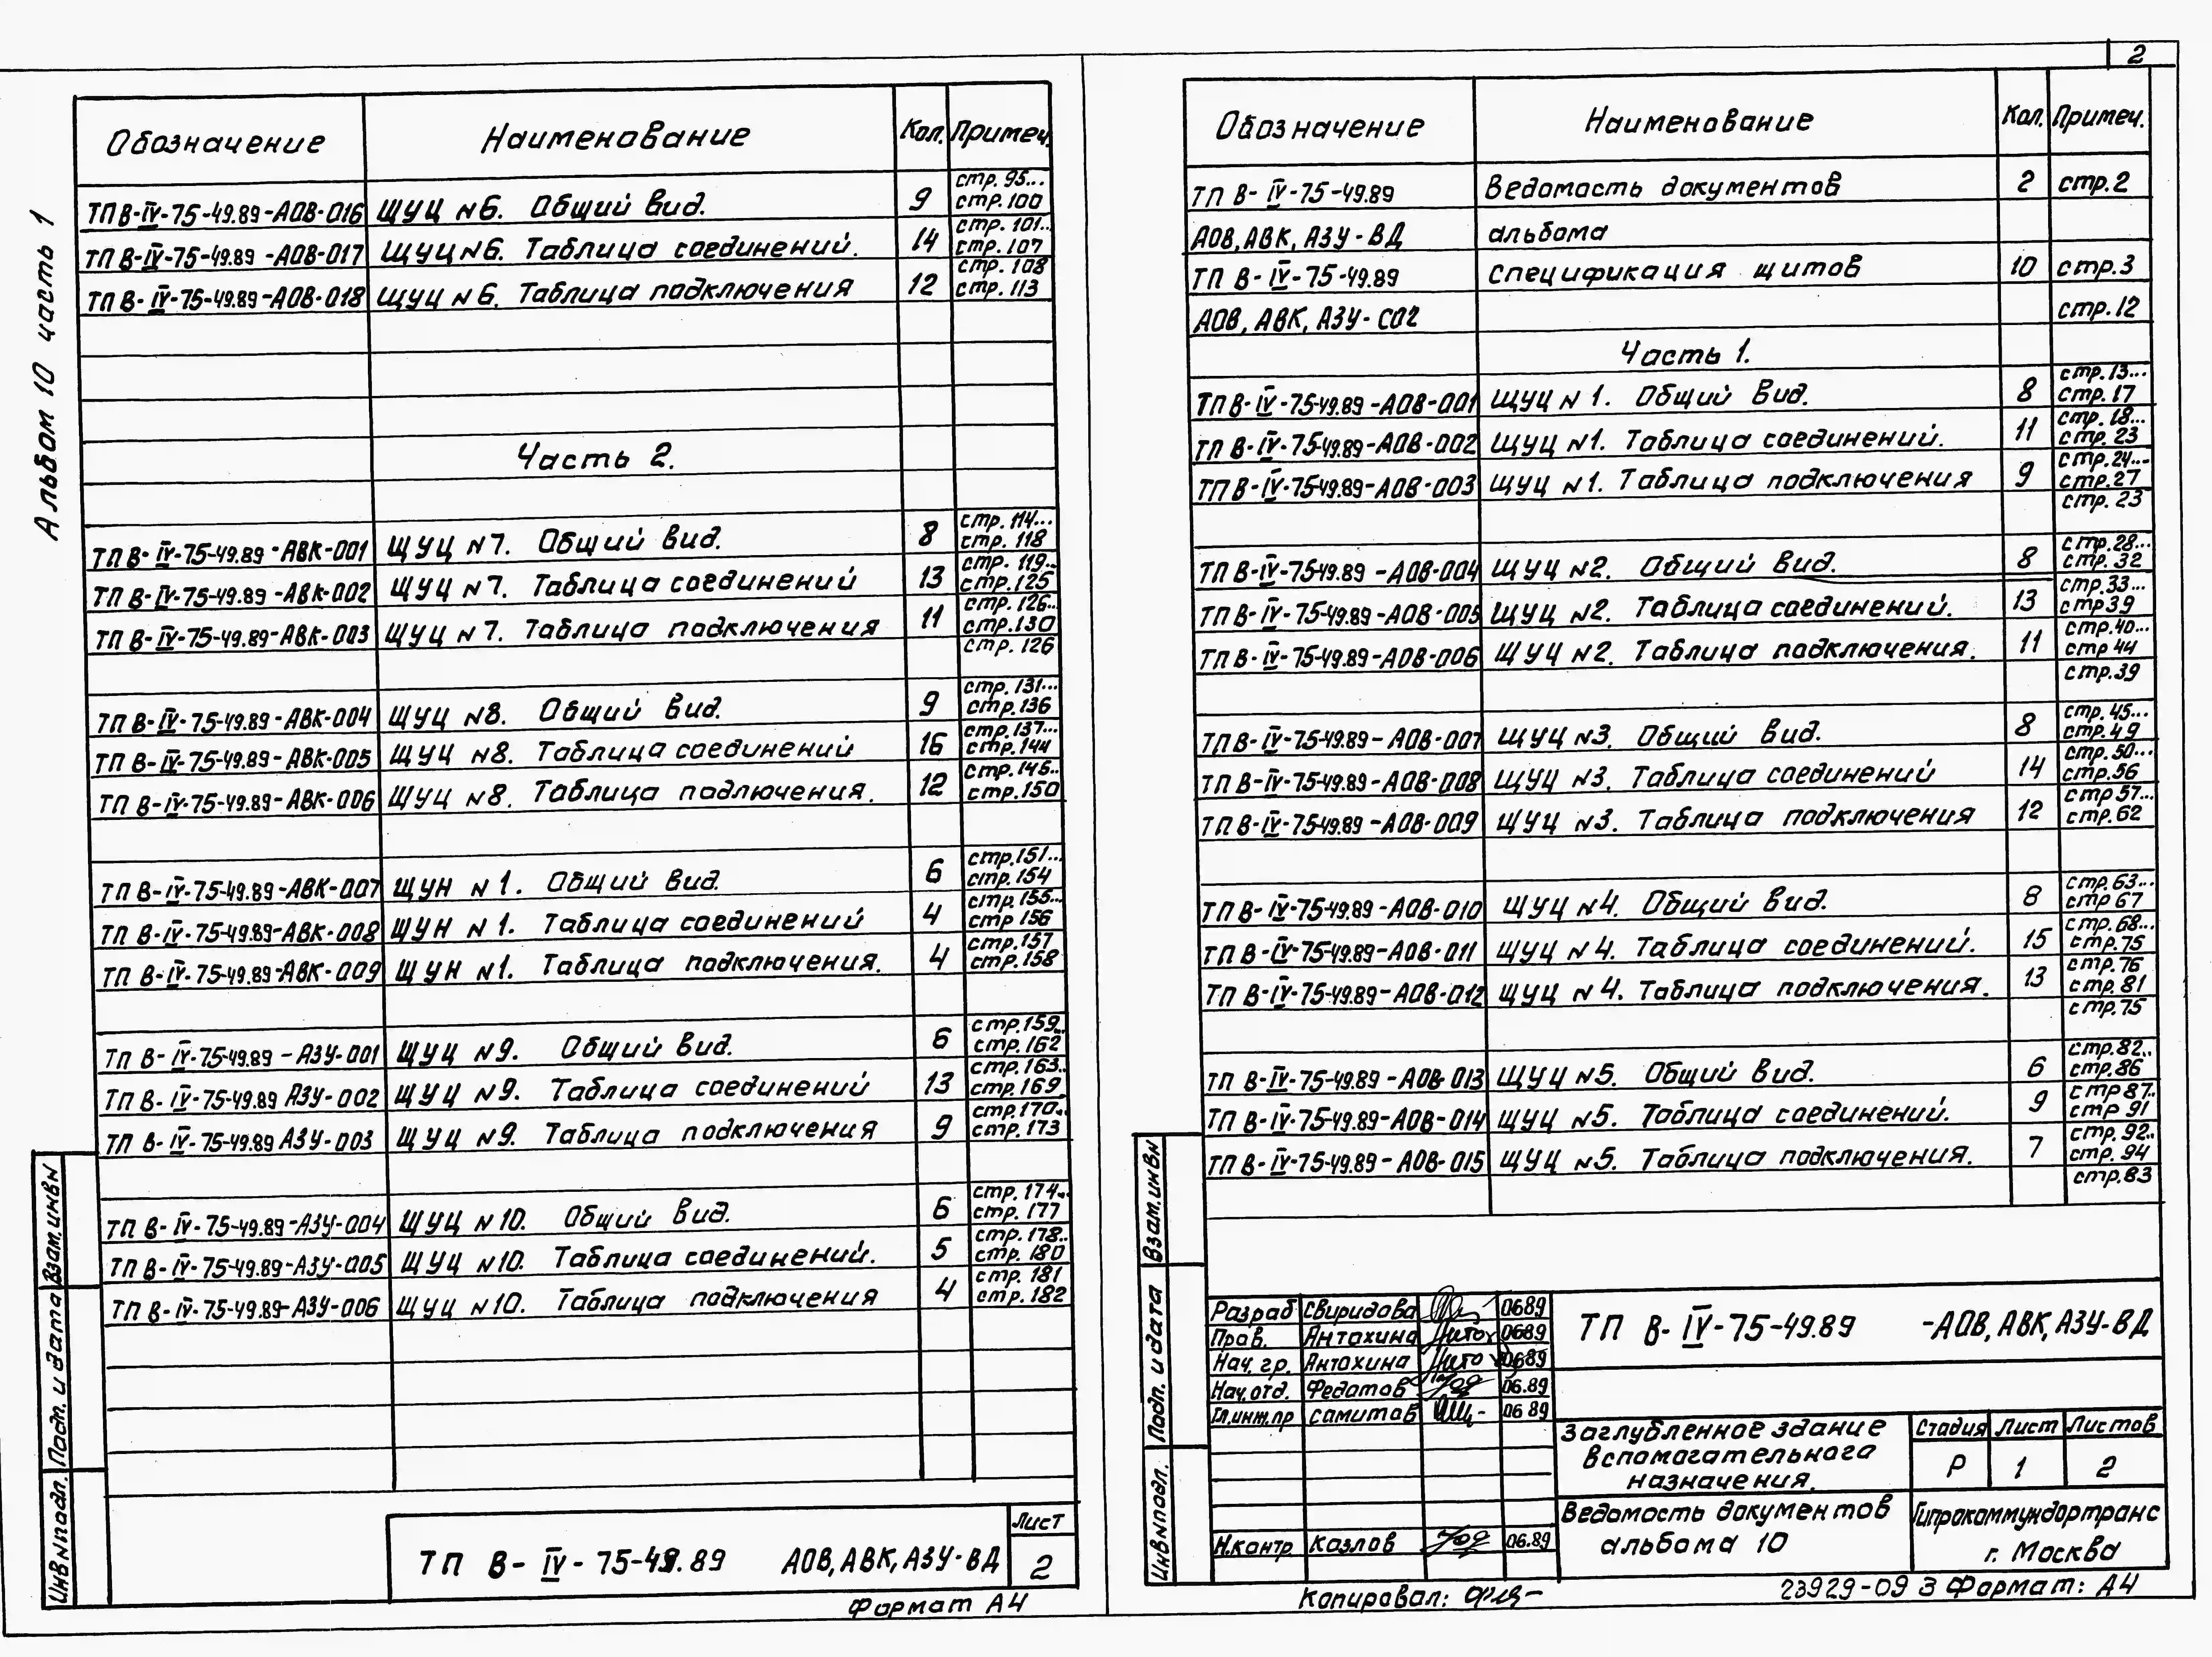 2
Альбом 10 часть 1
Обозначение Наименование Кол. Примеч.
стр. 95...
ТП В-IV-75-49.89-АОВ-016 ЩУЦ №6. Общий вид. 9 стр.100
стр. 101..
ТП В-IV-75-49.89-АОВ-017 ЩУЦ №6. Таблица соединений. 14 стр. 107
стр. 108
ТП В-IV-75-49.89-АОВ-018 ЩУЦ №6. Таблица подключения 12 стр. 113
Часть 2.
стр. 114...
ТП В-IV-75-49.89-АВК-001 ЩУЦ №7. Общий вид. 8 стр. 118
стр. 119..
ТП В-IV-75-49.89-АВК-002 ЩУЦ №7. Таблица соединений 13 стр.125
стр. 126..
ТП В-IV-75-49.89-АВК-003 ЩУЦ №7. Таблица подключения 11 стр.130
стр. 126
стр. 131...
ТП В-IV-75-49.89-АВК-004 ЩУЦ №8. Общий вид. 9 стр.136
стр.137...
ТП В-IV-75-49.89-АВК-005 ЩУЦ №8. Таблица соединений 16 стр.144
стр.145..
ТП В-IV-75-49.89-АВК-006 ЩУЦ №8. Таблица подлючения. 12 стр.150
стр.151...
ТП В-IV-75-49.89-АВК-007 ЩУН №1. Общий вид. 6 стр. 154
стр.155...
ТП В-IV-75-49.89-АВК-008 ЩУН №1. Таблица соединений 4 стр 156
стр.157
ТП В-IV-75-49.89-АВК-009 ЩУН №1. Таблица подключения. 4 стр.158
стр.159..
ТП В-IV-75-49.89-АЗУ-001 ЩУЦ №9. Общий вид. 6 стр.162
стр.163..
ТП В-IV-75-49.89 АЗУ-002 ЩУЦ №9. Таблица соединений 13 стр.169
стр.170..
ТП В-IV-75-49.89 АЗУ-003 ЩУЦ №9. Таблица подключения 9 стр.173
стр. 174..
ТП В-IV-75-49.89-АЗУ-004 ЩУЦ №10. Общий вид. 6 стр. 177
стр. 178..
ТП В-IV-75-49.89-АЗУ-005 ЩУЦ №10. Таблица соединений. 5 стр. 180
стр. 181
ТП В-IV-75-49.89-АЗУ-006 ЩУЦ №10. Таблица подключения 4 стр. 182
Взам.инв№
Подп. и дата
Инв№подл.
ТП В-IV-75-49.89 АОВ, АВК, АЗУ-ВД
Лист
2
Формат А4
Обозначение Наименование Кол. Примеч.
ТП В-IV-75-49.89 Ведомость документов 2 стр.2
АОВ, АВК, АЗУ-ВД альбома
ТП В-IV-75-49.89 Спецификация щитов 10 стр.3
АОВ, АВК, АЗУ-СО2 стр.12
Часть 1.
стр.13...
ТП В-IV-75-49.89-АОВ-001 ЩУЦ №1. Общий вид. 8 стр.17
стр. 18...
ТП В-IV-75-49.89-АОВ-002 ЩУЦ №1. Таблица соединений. 11 стр. 23
стр.24...
ТП В-IV-75-49.89-АОВ-003 ЩУЦ №1. Таблица подключения 9 стр.27
стр. 23
стр.28...
ТП В-IV-75-49.89-АОВ-004 ЩУЦ №2. Общий вид. 8 стр. 32
стр.33...
ТП В-IV-75-49.89-АОВ-005 ЩУЦ №2. Таблица соединений. 13 стр39
стр.40...
ТП В-IV-75-49.89-АОВ-006 ЩУЦ №2. Таблица подключения. 11 стр 44
стр.39
стр. 45...
ТП В-IV-75-49.89-АОВ-007 ЩУЦ №3. Общий вид. 8 стр.49
стр.50...
ТП В-IV-75-49.89-АОВ-008 ЩУЦ №3. Таблица соединений 14 стр.56
стр 57...
ТП В-IV-75-49.89-АОВ-009 ЩУЦ №3. Таблица подключения 12 стр.62
стр.63...
ТП В-IV-75-49.89-АОВ-010 ЩУЦ №4. Общий вид. 8 стр 67
стр.68...
ТП В-IV-75-49.89-АОВ-011 ЩУЦ №4. Таблица соединений. 15 стр.75
стр.76
ТП В-IV-75-49.89-АОВ-012 ЩУЦ №4. Таблица подключения. 13 стр. 81
стр.75
стр.82..
ТП В-IV-75-49.89-АОВ-013 ЩУЦ №5. Общий вид. 6 стр.86
стр 87..
ТП В-IV-75-49.89-АОВ-014 ЩУЦ №5. Таблица соединений. 9 стр 91
стр. 92..
ТП В-IV-75-49.89-АОВ-015 ЩУЦ №5. Таблица подключения. 7 стр. 94
стр.83
Взам.инв№
Подп. и дата
Инв№подл.
Разраб Свиридова 0689
Пров. Антохина 0689
Нач. гр. Антохина 0689
Нач.отд. Федотов 06.89
Гл.инж.пр Самитов 06 89
Н.контр Козлов 06.89
ТП В-IV-75-49.89 -АОВ, АВК, АЗУ-ВД
Заглубленное здание
вспомогательного
назначения.
Стадия Лист Листов
Р 1 2
Ведомость документов
альбома 10
Гипрокоммундортранс
г. Москва
Копировал:
23929-09 3 Формат: А4